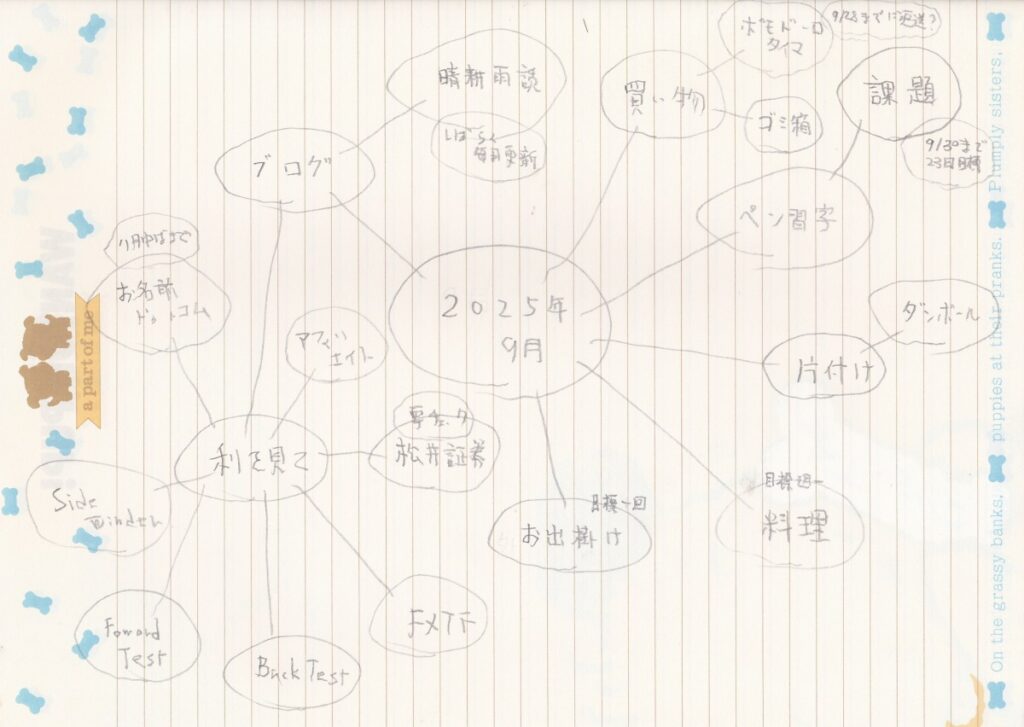 2025年
9月
ブログ
晴耕雨読
しばらく
毎日更新
買い物
ポモドーロ
タイマ
ゴミ箱
ペン習字
課題
9/28までに返送?
9/30まで
23日目標
片付け
ダンボール
料理
目標週一
お出掛け
目標一回
利を見て
お名前
ドットコム
11月中ばまで
アフィリ
エイト
松井証券
要チェック
Side
Winder
Foward
Test
Back Test
FXTF
a part of me
On the grassy banks, puppies at their pranks. Plumply sisters,